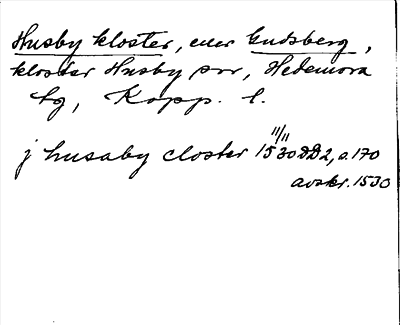 Husby kloster, eller Gudsberg,
kloster Husby snr, Hedemora
tg, Kopp. l.
j husaby closter 11/11 1530 DD2, s. 170
avskr. 1530